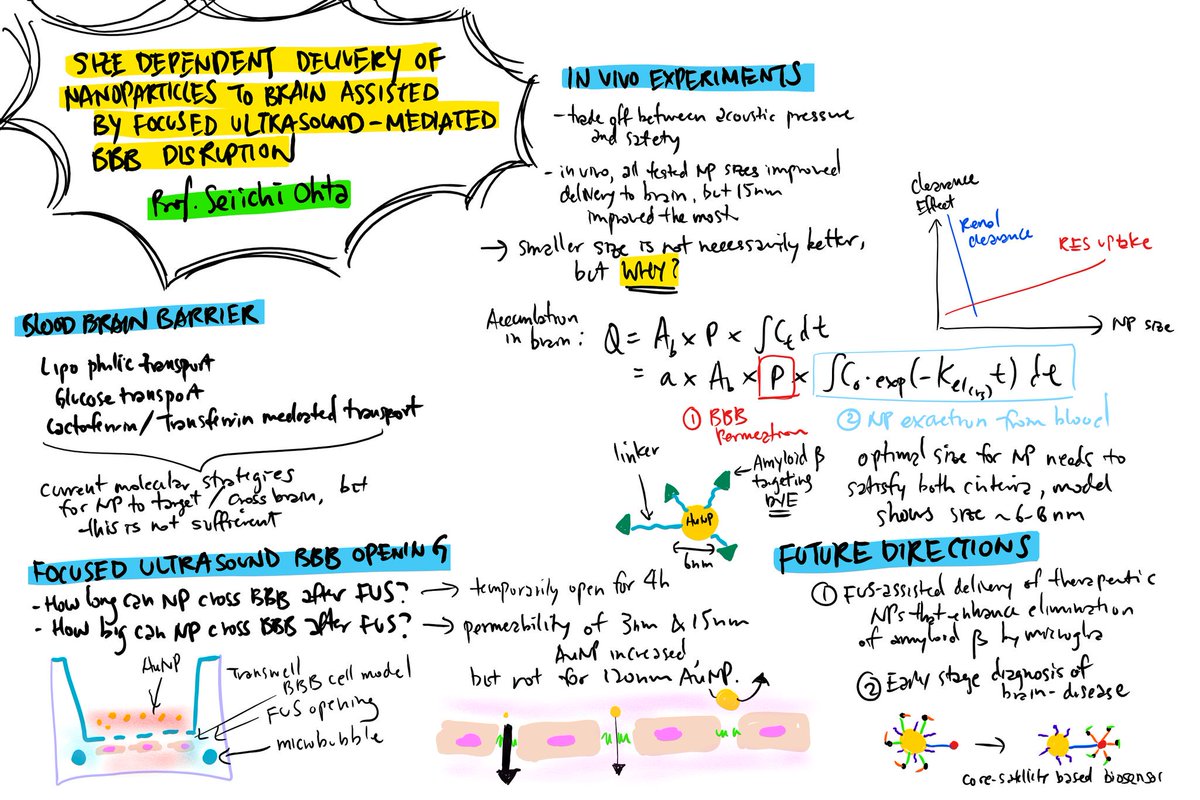 SIZE DEPENDENT DELIVERY OF
NANOPARTICLES TO BRAIN ASSISTED
BY FOCUSED ULTRASOUND-MEDIATED
BBB DISRUPTION
Prof. Seiichi Ohta
BLOOD BRAIN BARRIER
Lipophilic transport
Glucose transport
Lactoferrin/Transferrin mediated transport
Current molecular strategies
for NP to target/cross brain, but
this is not sufficient
FOCUSED ULTRASOUND BBB OPENING
- How long can NP cross BBB after FUS? → temporarily open for 4h
- How big can NP cross BBB after FUS? → permeability of 3nm & 15nm
AuNP increased,
but not for 120nm AuNP.
AuNP
Transwell
BBB cell model
FUS opening
microbubble
IN VIVO EXPERIMENTS
- trade off between acoustic pressure
and safety
- in vivo, all tested NP sizes improved
delivery to brain, but 15nm
improved the most
→ smaller size is not necessarily better,
but WHY?
Clearance
Effect
Renal
clearance
RES uptake
NP size
Accumulation
in brain:
Q = A_b × P × ∫C_t dt
= a × A_b × P × ∫C_0·exp(-K_el(r)t) dt
① BBB
permeation
② NP excretion from blood
optimal size for NP needs to
satisfy both criteria, model
shows size ~6-8nm
linker
Amyloid β
targeting
AuNP
6nm
FUTURE DIRECTIONS
① FUS-assisted delivery of therapeutic
NPs that enhance elimination
of amyloid β by microglia
② Early stage diagnosis of
brain-disease
core-satellite based biosensor